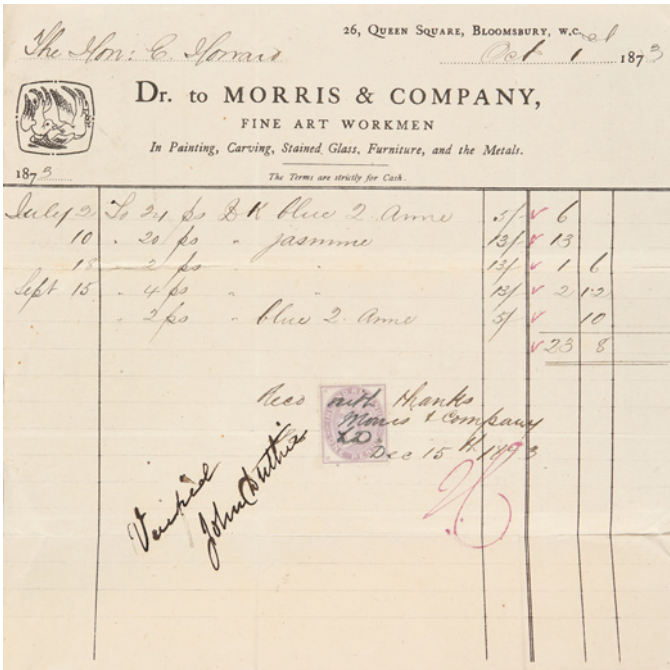 26, QUEEN SQUARE, BLOOMSBURY, W.C.
The Hon: C. Howard
Oct 1 st 1873
Dr. to MORRIS & COMPANY,
FINE ART WORKMEN
In Painting, Carving, Stained Glass, Furniture, and the Metals.
1873
The Terms are strictly for Cash.
July 2 To 24 ps D K blue 2. Anne 5/ 6
10 " 20 ps " jasmine 13/ 13
18 " 2 ps " " 13/ 1 6
Sept 15 " 4 ps " " 13/ 2 12
" 2 ps " blue 2. Anne 5/ 10
23 8
Recd with thanks
Morris & Company
Dec 15th 1873
Verified
John Duthie